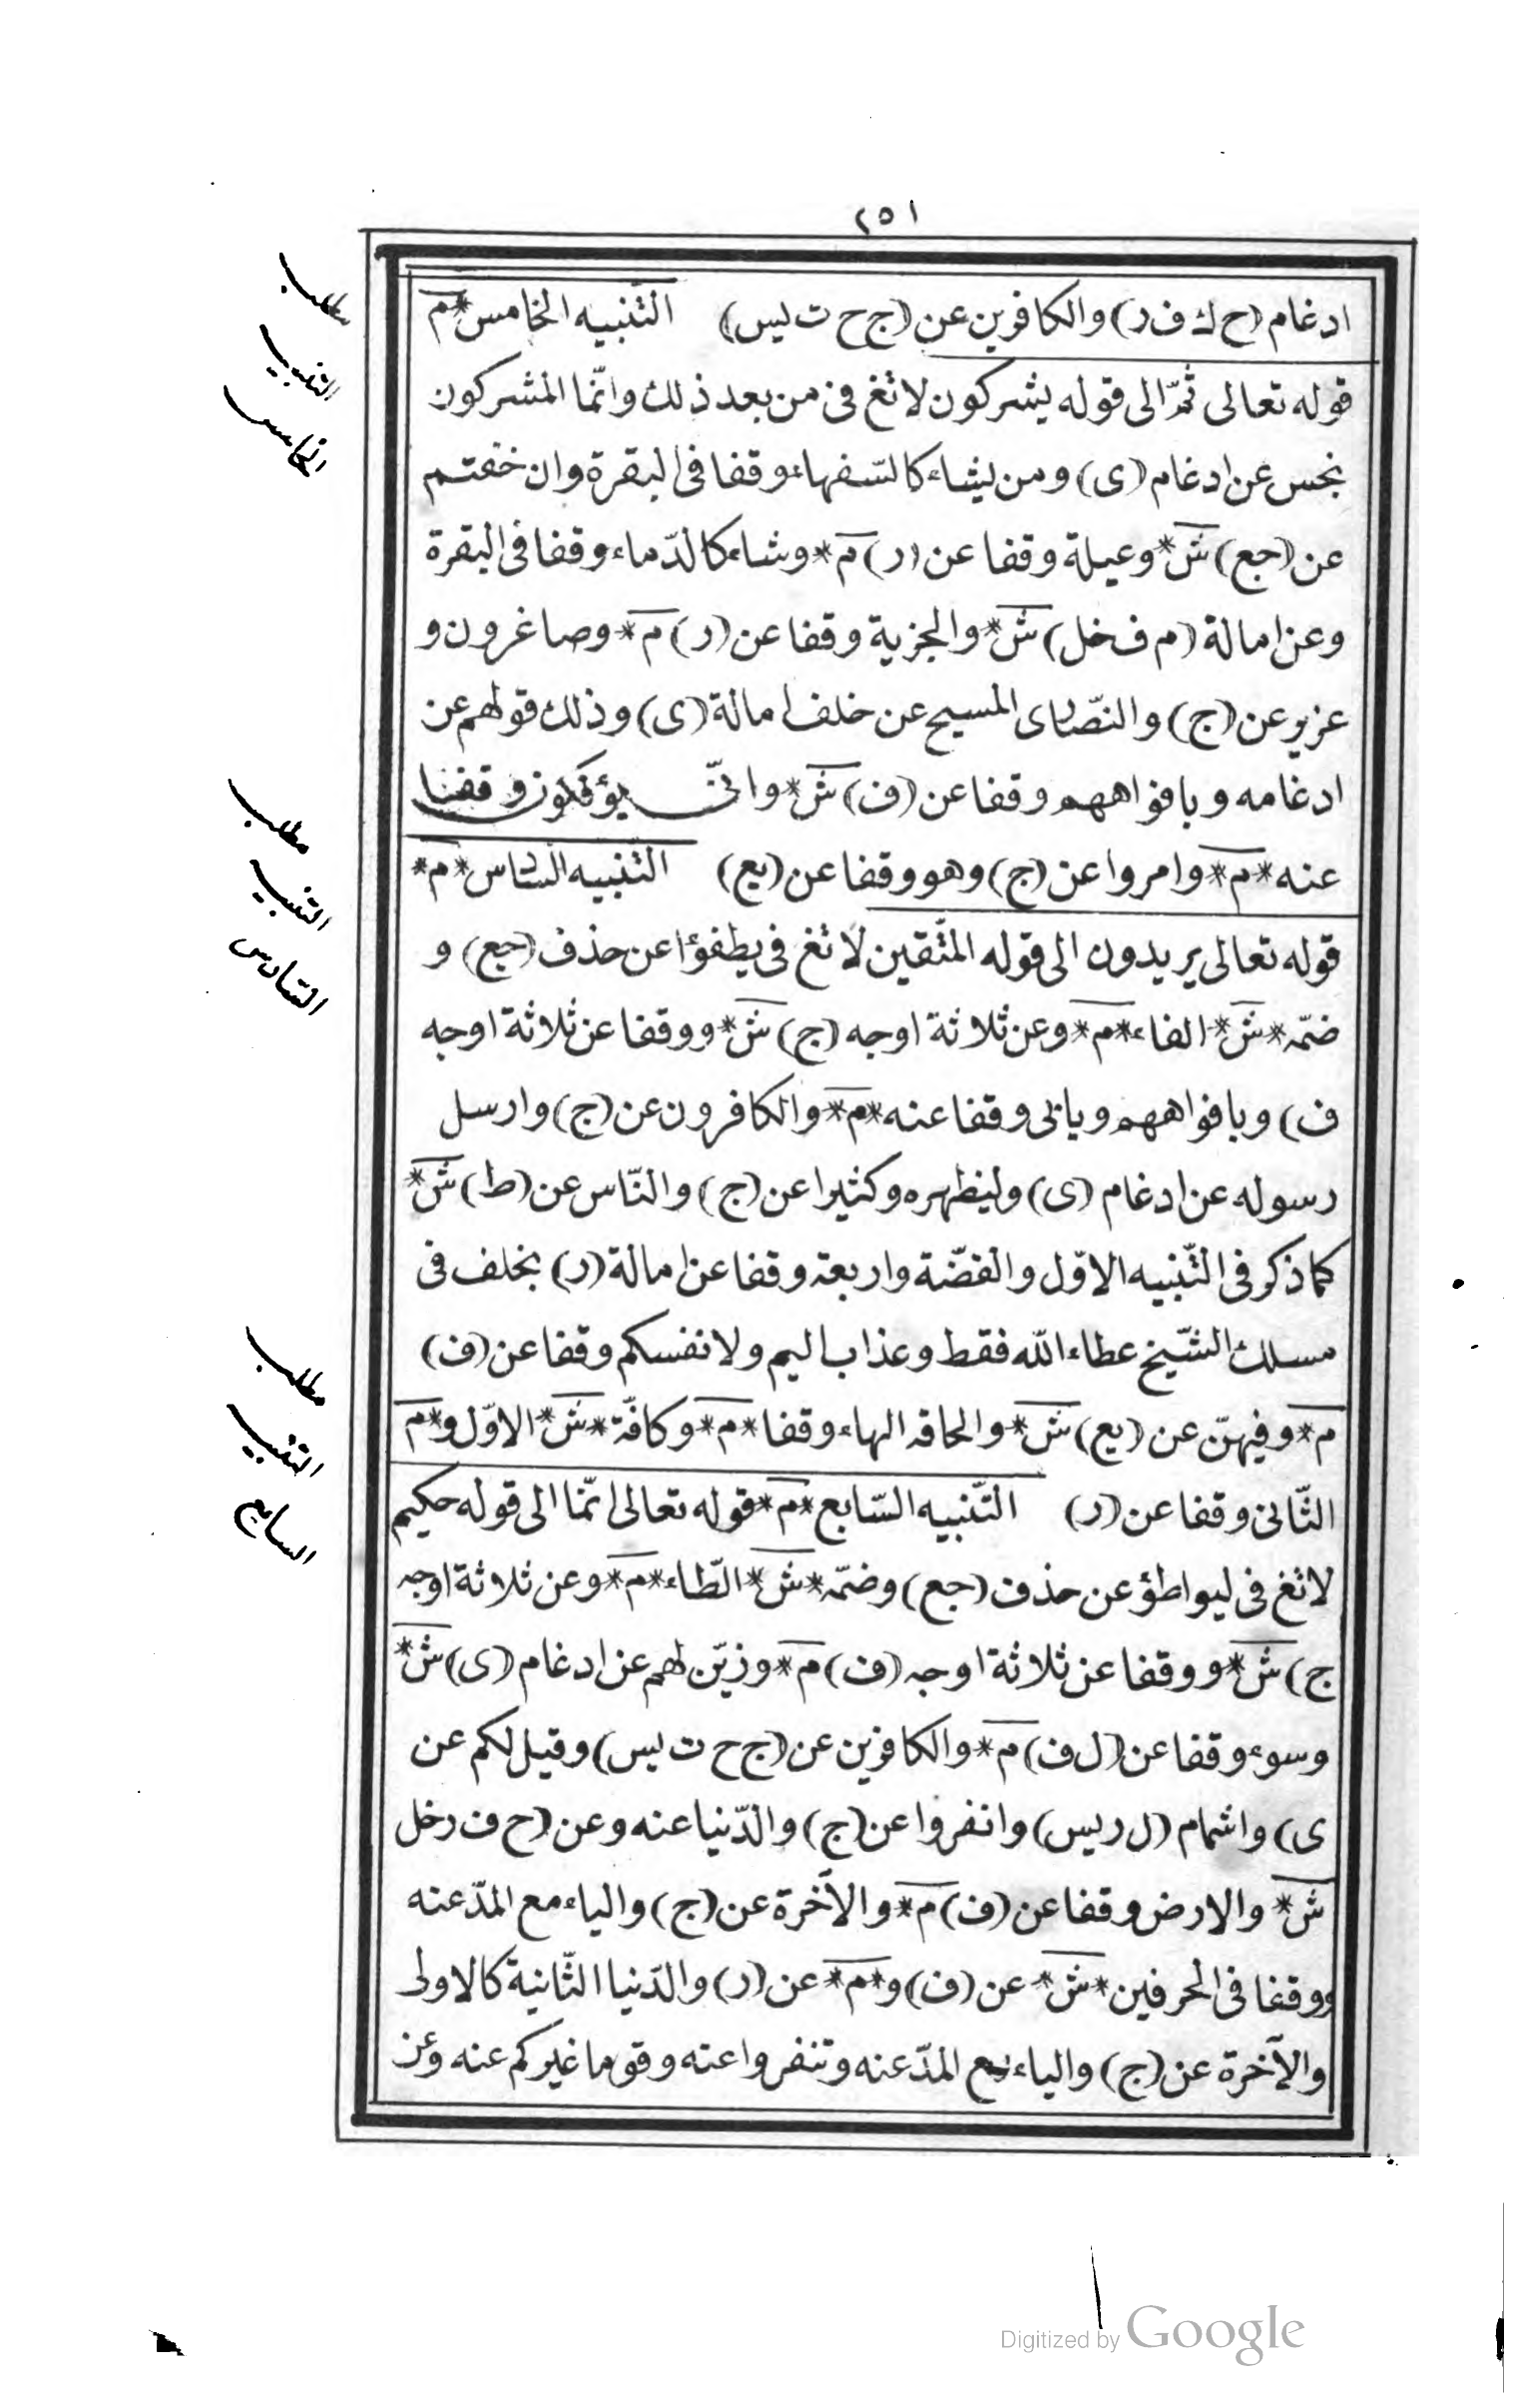 ٢٥١
ادغام (ح ك ف ر) والكافرين عن (ج ح ت يس) التّنبيه الخامس * م
قوله تعالى ثمّ الى قوله يشركون لا تغ فى من بعد ذلك وانّما المشركون
نجس عن ادغام (ى) ومن يشاء كالسّفهاء وقفا فى البقرة وان خفتم
عن (جع) ش * وعيلة وقفا عن (ر) م * وشاء كالدّماء وقفا فى البقرة
وعن امالة (م ف خل) ش * والجزية وقفا عن (ر) م * وصاغرون و
عزير عن (ج) والنّصارى المسيح عن خلف امالة (ى) وذلك قولهم عن
ادغامه وبافواههم وقفا عن (ف) ش * وانّى يؤفكون وقفا
عنه * م * وامروا عن (ج) وهو وقفا عن (يع) التّنبيه السّادس * م *
قوله تعالى يريدون الى قوله المتّقين لا تغ فى يطفؤا عن حذف (جع) و
ضمّه * ش * الفاء * م * وعن ثلاثة اوجه (ج) ش * ووقفا عن ثلاثة اوجه
ف) وبافواههم ويابى وقفا عنه * م * والكافرون عن (ج) وارسل
رسوله عن ادغام (ى) وليظهره وكثيرا عن (ج) والنّاس عن (ط) ش *
كما ذكر فى التّنبيه الاوّل والفضّة واربعة وقفا عن امالة (ر) بخلف فى
مسلك الشّيخ عطاء الله فقط وعذاب اليم ولانفسكم وقفا عن (ف)
م * وفيهنّ عن (يع) ش * والحاقه الهاء وقفا * م * وكافّة * ش * الاوّل و * م
الثّانى وقفا عن (ر) التّنبيه السّابع * م * قوله تعالى انّما الى قوله حكيم
لا تغ فى ليواطؤ عن حذف (جع) وضمّه * ش * الطّاء * م * وعن ثلاثة اوجه
ج) ش * ووقفا عن ثلاثة اوجه (ف) م * وزيّن لهم عن ادغام (ى) ش *
وسوء وقفا عن (ل ف) م * والكافرين عن (ج ح ت يس) وقيل لكم عن
ى) واشمام (ل ر يس) وانفروا عن (ج) والدّنيا عنه وعن (ح ف ر خل
ش * والارض وقفا عن (ف) م * والآخرة عن (ج) والياء مع المدّ عنه
ووقفا فى الحرفين * ش * عن (ف) و * م * عن (ر) والدّنيا الثّانية كالاولى
والآخرة عن (ج) والياء مع المدّ عنه وتنفروا عنه وقوما غيركم عنه وعن
مطلب
التنبيه
الخامس
مطلب
التنبيه
السّادس
مطلب
التنبيه
السابع
Digitized by Google